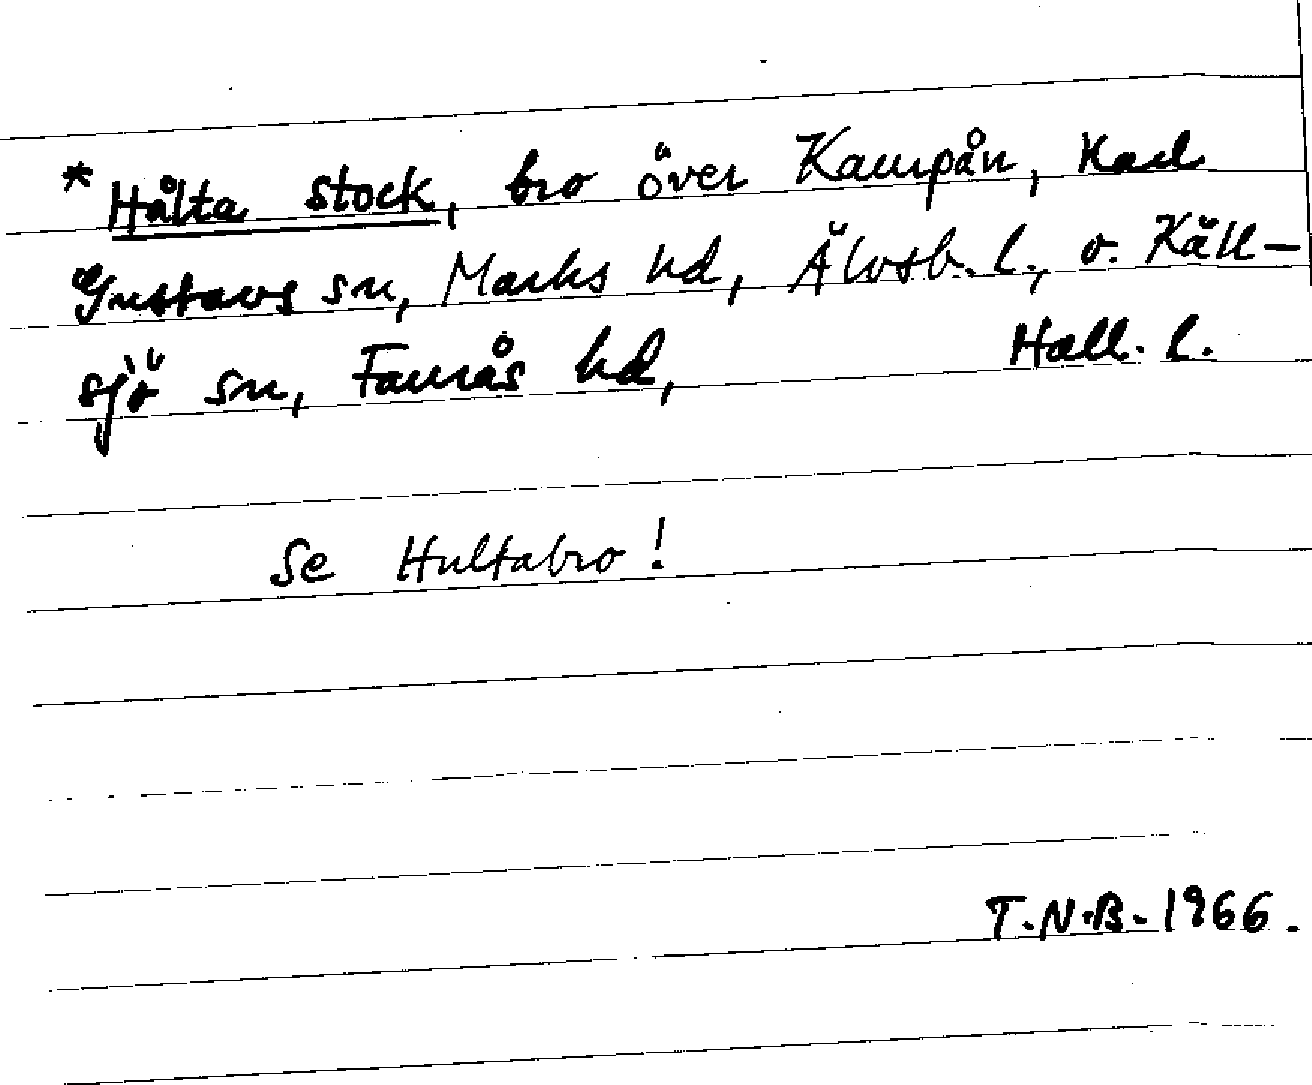 * Hålta stock, bro över Kampån, Karl
Gustavs sn, Marks hd, Älvsb. l., o. Käll-
sjö sn, Faurås hd, Hall. l.
Se Hultabro!
T.N.B. 1966.